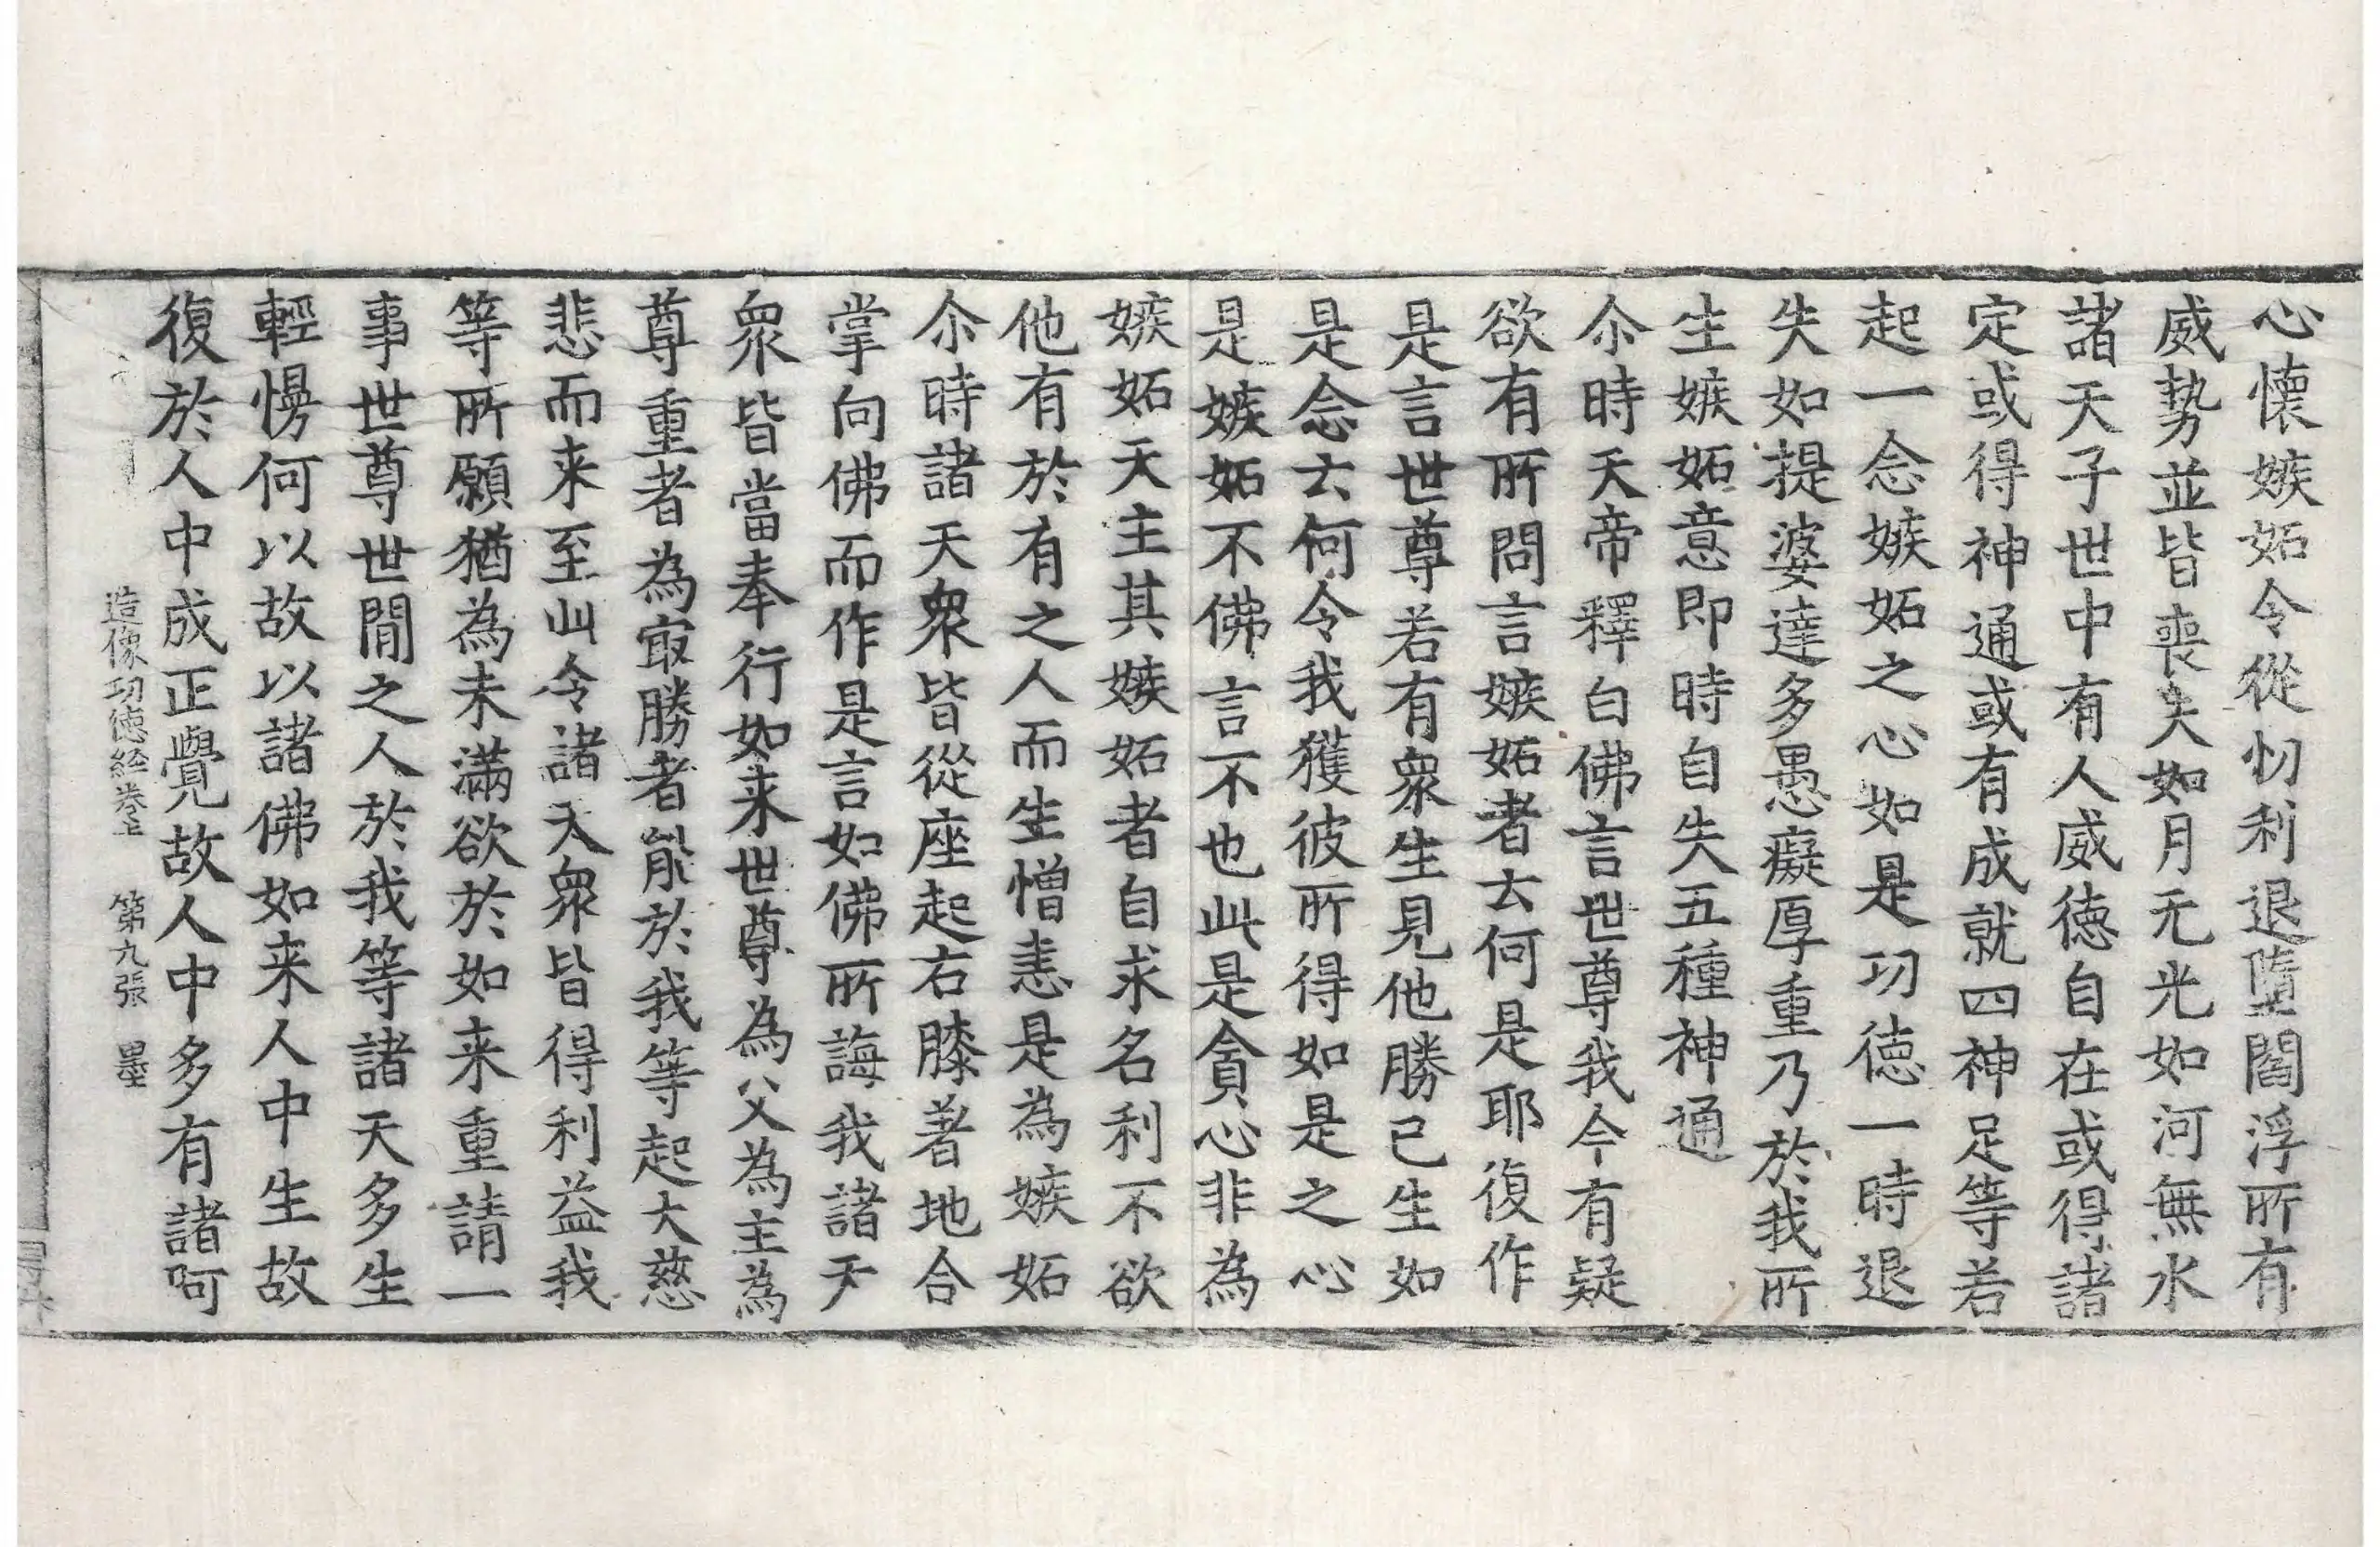 心懷嫉妬令從忉利退墮閻浮所有
威勢並皆喪失如月无光如河無水
諸天子世中有人威徳自在或得諸
定或得神通或有成就四神足等若
起一念嫉妬之心如是功徳一時退
失如提婆達多愚癡厚重乃於我所
生嫉妬意即時自失五種神通
尒時天帝釋白佛言世尊我今有疑
欲有所問言嫉妬者云何是耶復作
是言世尊若有衆生見他勝己生如
是念云何令我獲彼所得如是之心
是嫉妬不佛言不也此是貪心非為
嫉妬天主其嫉妬者自求名利不欲
他有於有之人而生憎恚是為嫉妬
尒時諸天衆皆從座起右膝著地合
掌向佛而作是言如佛所誨我諸天
衆皆當奉行如来世尊為父為主為
尊重者為㝡勝者能於我等起大慈
悲而来至此令諸天衆皆得利益我
等所願猶為未滿欲於如来重請一
事世尊世間之人於我等諸天多生
輕慢何以故以諸佛如来人中生故
復於人中成正覺故人中多有諸呵
造像功徳経巻上 第九張 墨